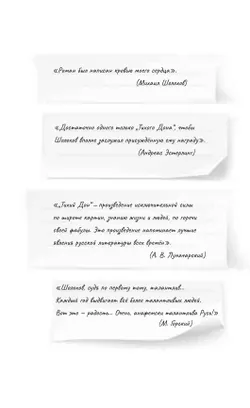 «Роман был написан кровью моего сердца».
(Михаил Шолохов)
«Достаточно одного только „Тихого Дона“, чтобы
Шолохов вполне заслужил присуждённую ему награду».
(Андерс Эстерлинг)
«„Тихий Дон“ – произведение исключительной силы
по широте картин, знанию жизни и людей, по горечи
своей фабулы. Это произведение напоминает лучшие
явления русской литературы всех времён».
(А. В. Луначарский)
«Шолохов, судя по первому тому, талантлив...
Каждый год выдвигает всё более талантливых людей.
Вот это – радость... Очень, анафемски талантлива Русь!»
(М. Горький)